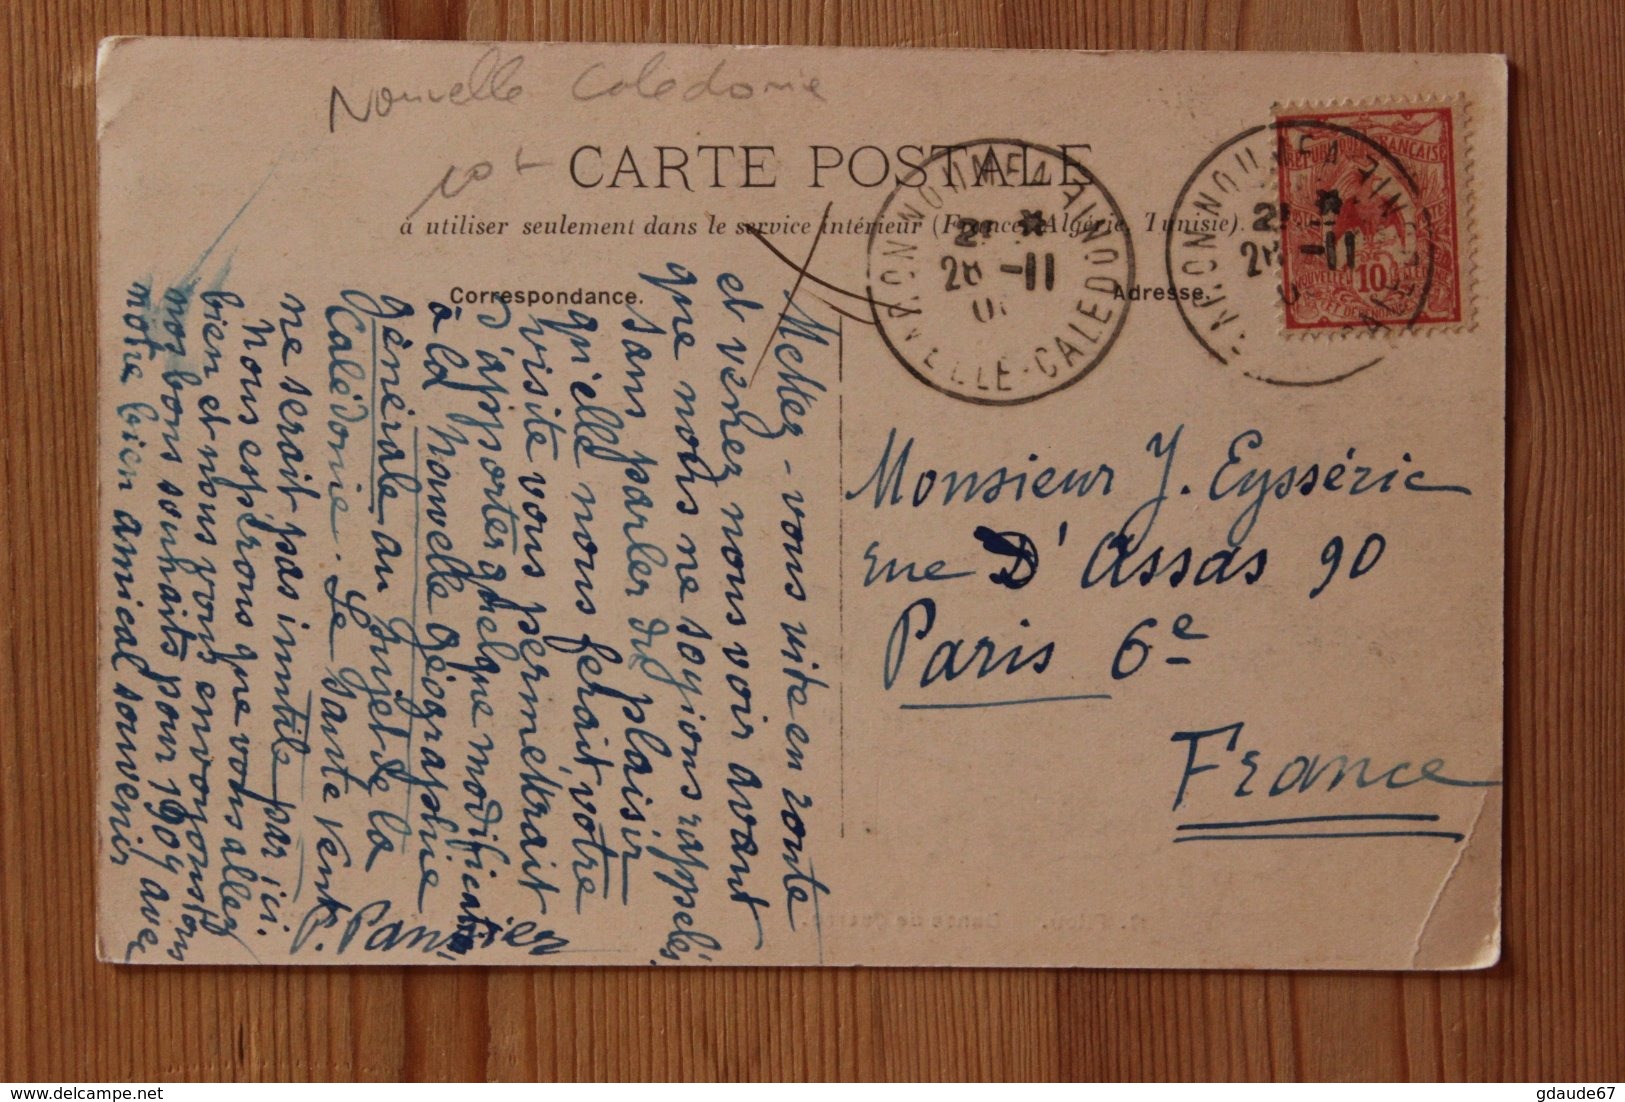 Nouvelle Caledonie
CARTE POSTALE
à utiliser seulement dans le service intérieur (France, Algérie, Tunisie).
Correspondance.
Adresse.
NOUMEA
Nlle-CALEDONIE
28 -11
NOUMEA
-11
REPUBLIQUE FRANÇAISE
10
Mettez-vous vite en route
et venez nous voir avant
que nous ne soyions rappelés,
sans parler du plaisir
qu'elle nous ferait, votre
visite vous permettrait
d'apporter quelque modification
à la Nouvelle géographie
générale au sujet de la
Calédonie. Le Gaste vent
ne serait pas inutile par ici.
Nous espérons que vous allez
bien et nous vous envoyons
nos bons souhaits pour 1909 avec
notre bien amical souvenir
P.
Monsieur J. Eysséric
rue D'Assas 90
Paris 6e
France
Danse de Guerre.
gdaude67